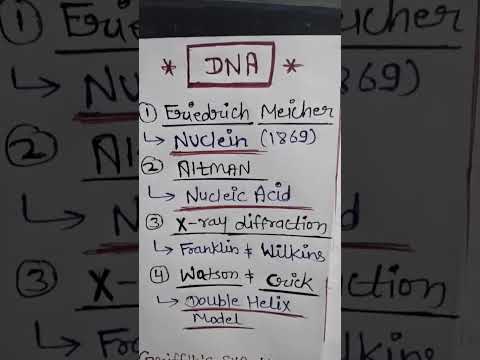 * DNA *
① Friedrich Meicher
↳ Nuclein (1869)
② AltMAN
↳ Nucleic Acid
③ X-ray diffraction
↳ Franklin & Wilkins
④ Watson & Crick
↳ Double Helix
Model